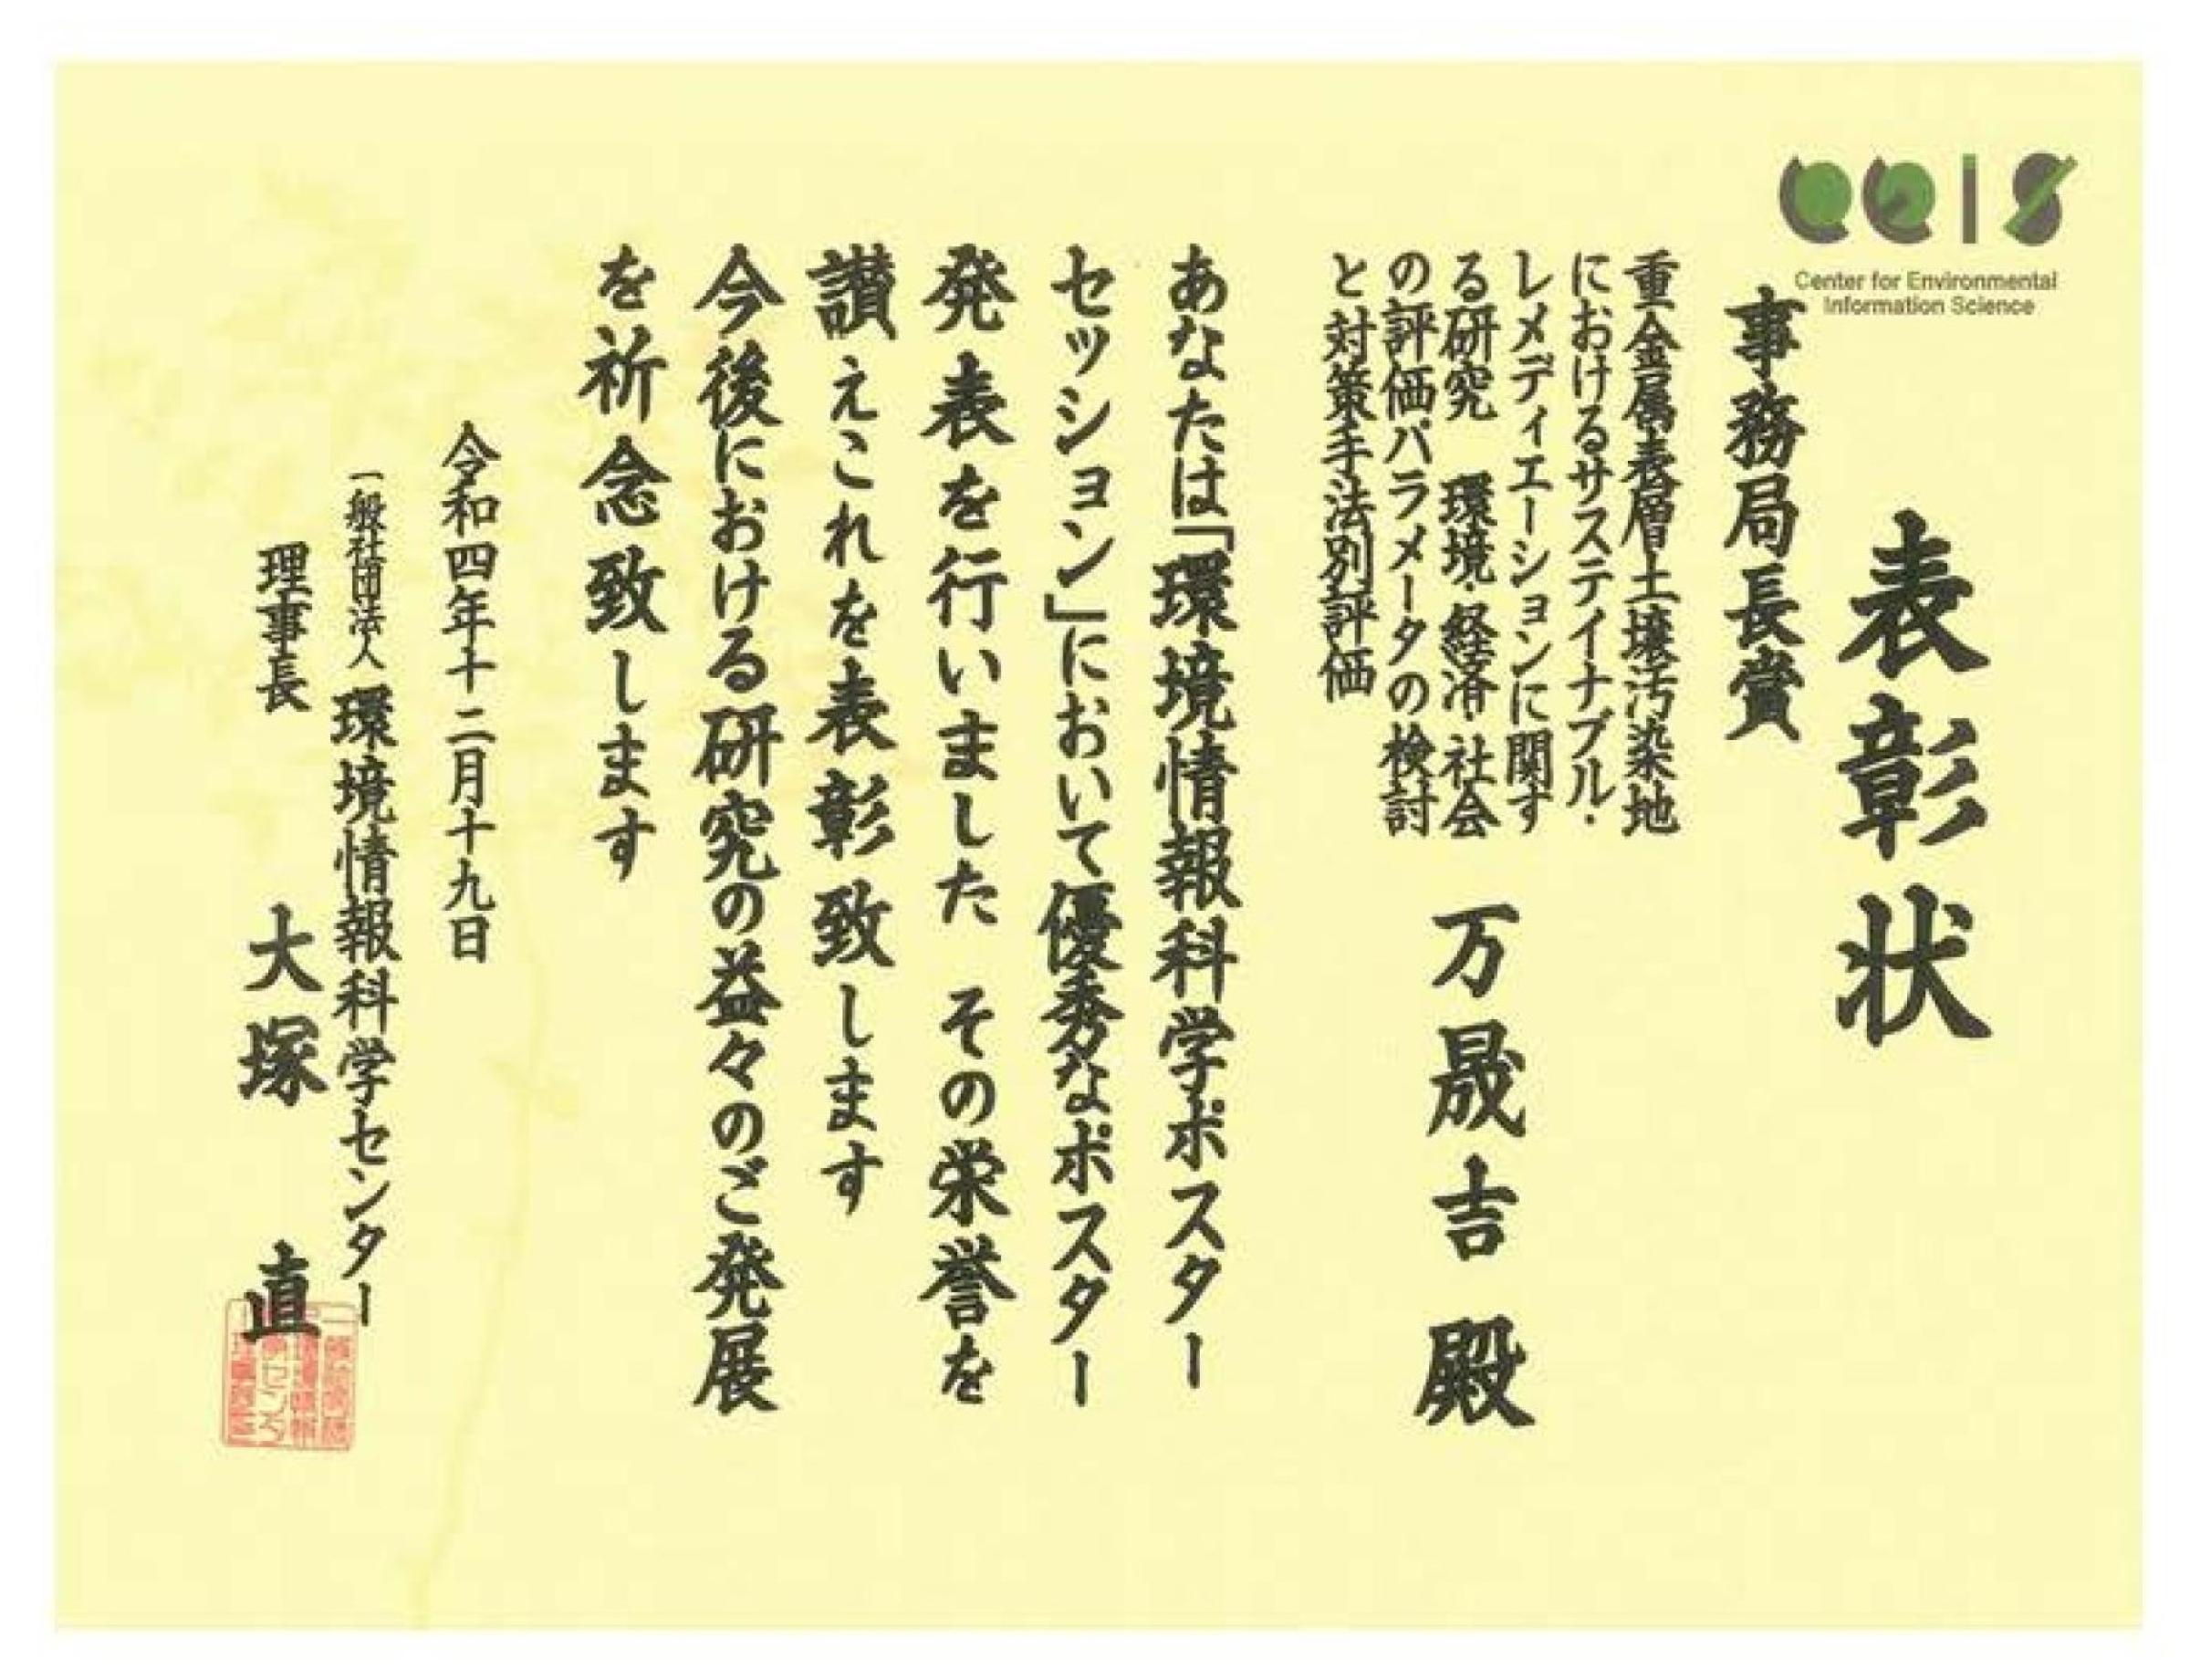 ceis
Center for Environmental
Information Science
表彰状
事務局長賞
重金属表層土壌汚染地
におけるサステイナブル・
レメディエーションに関す
る研究　環境・経済・社会
の評価パラメータの検討
と対策手法別評価
万晟吉殿
あなたは「環境情報科学ポスター
セッション」において優秀なポスター
発表を行いました　その栄誉を
讃えこれを表彰致します
今後における研究の益々のご発展
を祈念致します
令和四年十二月十九日
一般社団法人環境情報科学センター
理事長　大塚　直